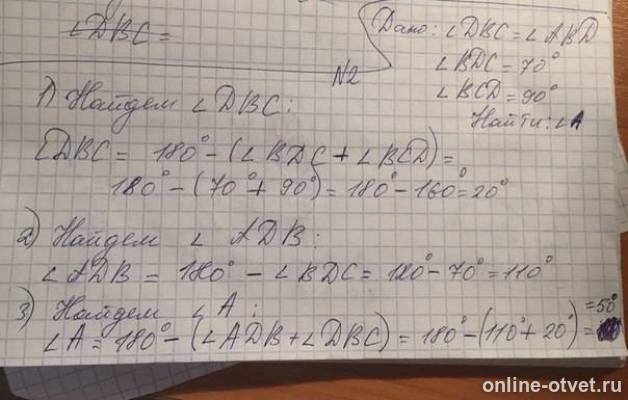 ∠DBC =
Дано: ∠DBC = ∠ABD
∠BDC = 70°
∠BCD = 90°
Найти: ∠A
N2
1) Найдем ∠DBC:
∠DBC = 180° - (∠BDC + ∠BCD) =
180° - (70° + 90°) = 180° - 160° = 20°
2) Найдем ∠ADB:
∠ADB = 180° - ∠BDC = 180° - 70° = 110°
3) Найдем ∠A:
∠A = 180° - (∠ADB + ∠DBC) = 180° - (110° + 20°) = = 50°
online-otvet.ru